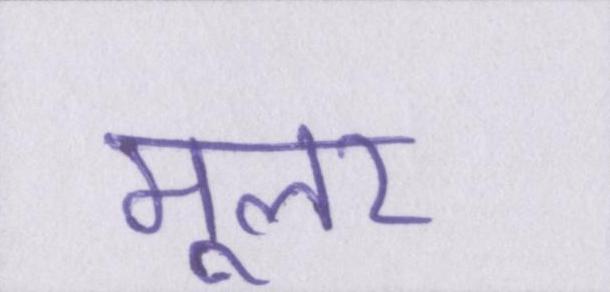 मूलर